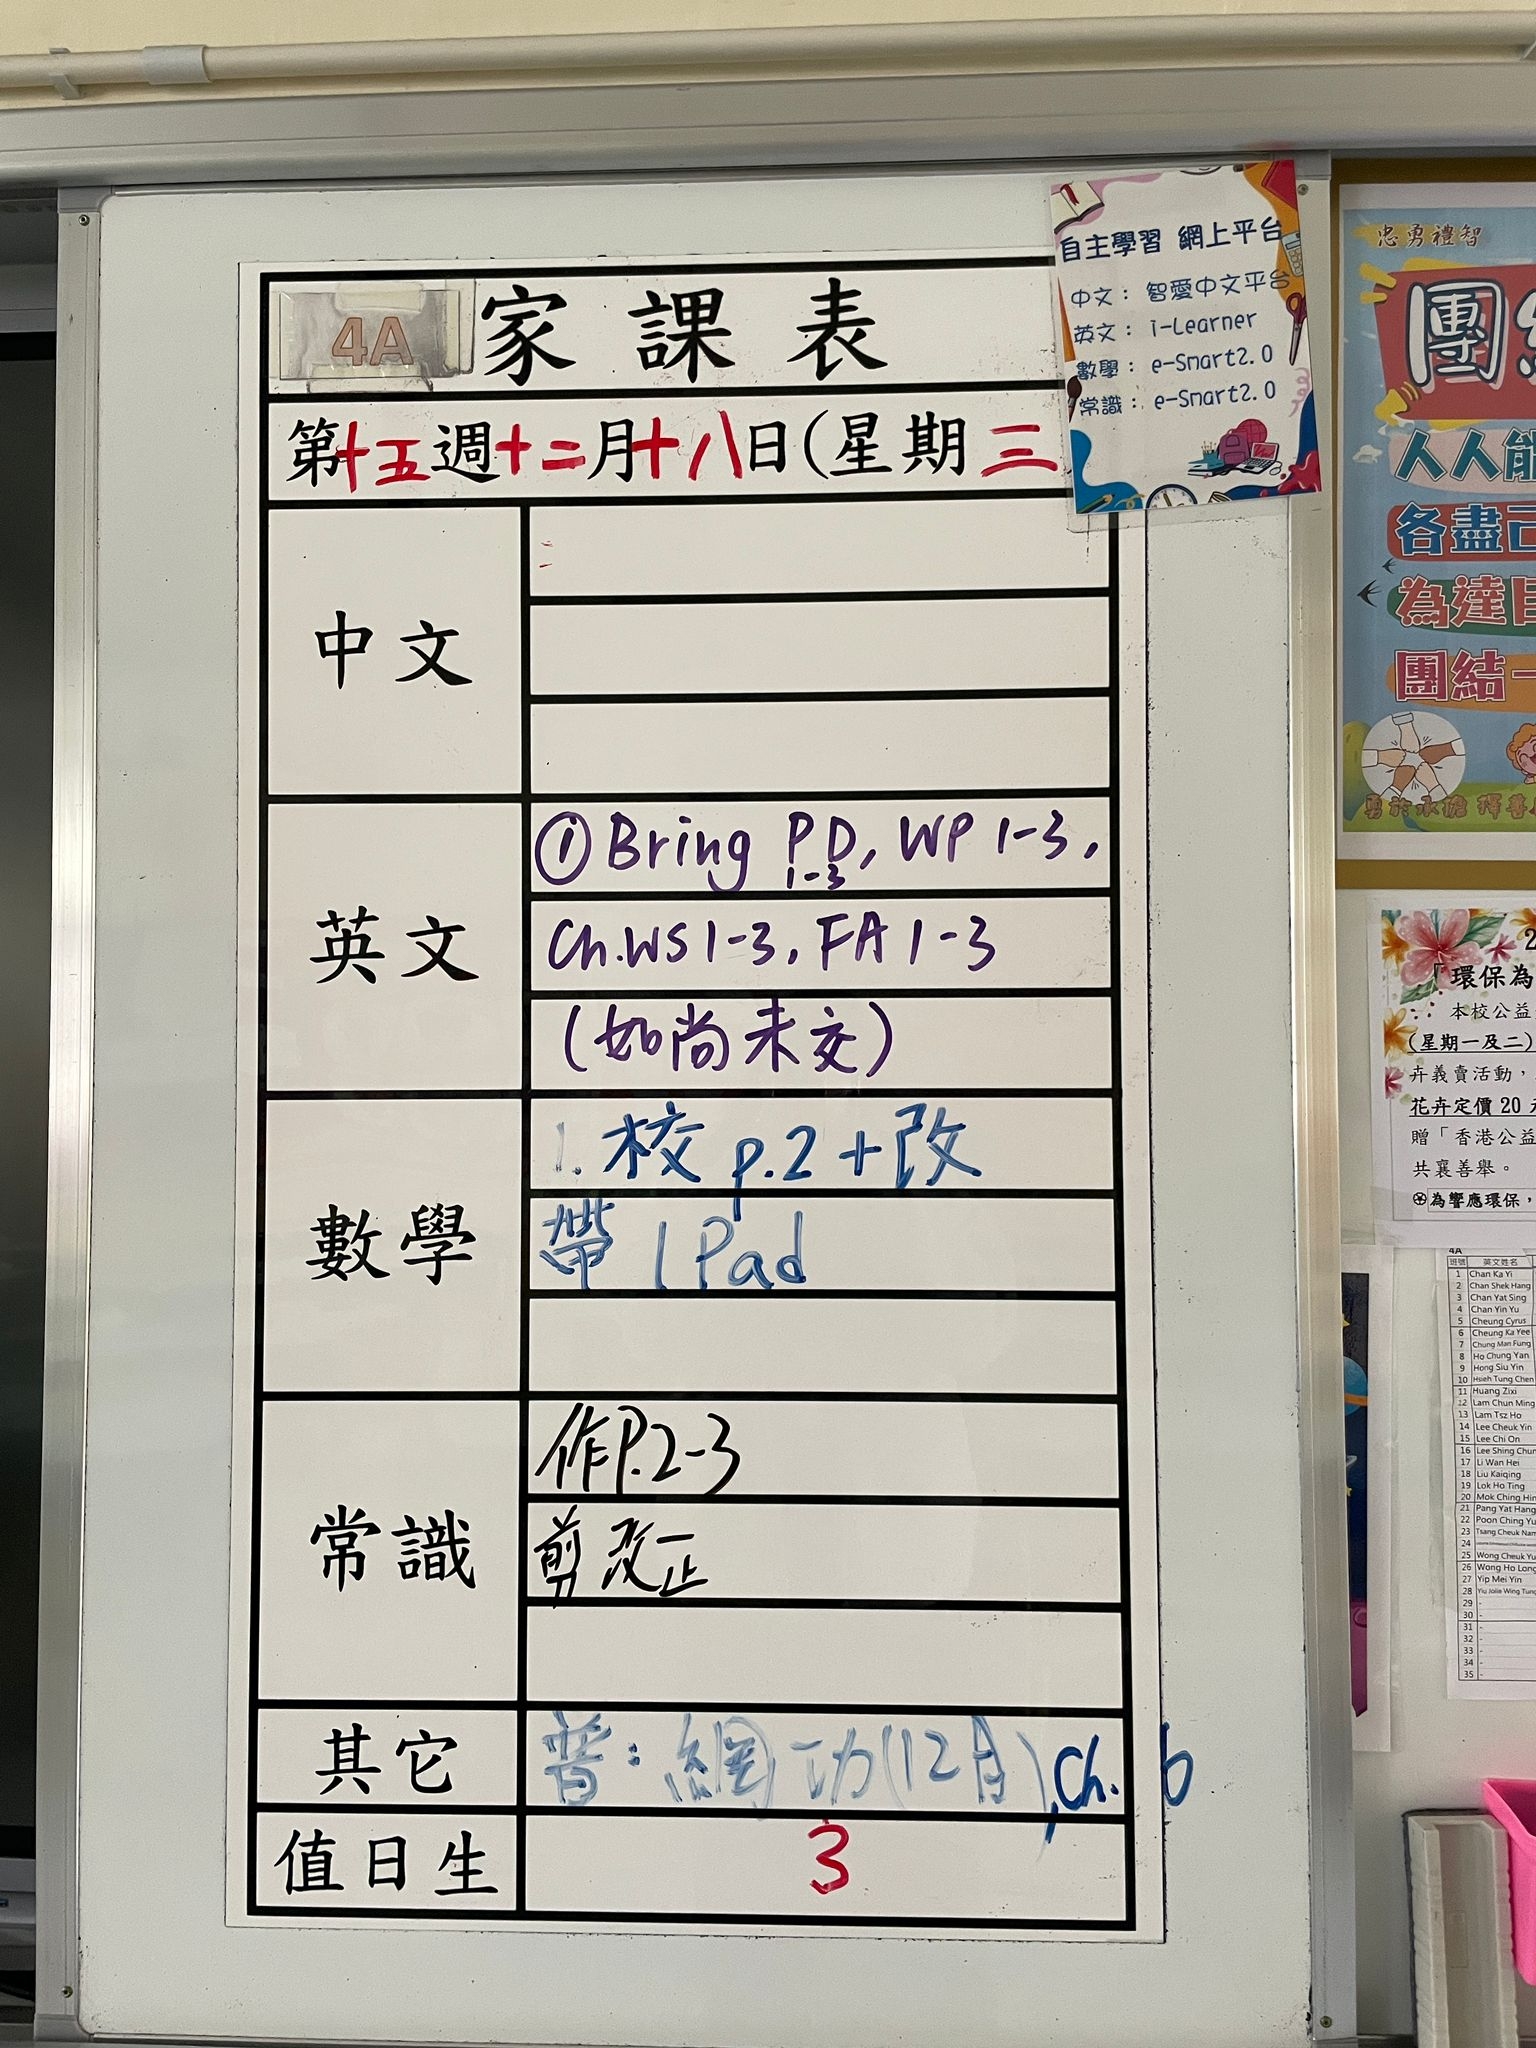 4A 家課表
第十五週十二月十八日(星期三
中文
英文
①Bring PD 1-3, WP 1-3,
Ch.WS 1-3, FA 1-3
(如尚未交)
數學
1. 校 p.2+改
帶 IPad
常識
作P.2-3
剪 改正
其它
普：網功(12月), Ch. 6
值日生
3
自主學習 網上平台
中文： 智愛中文平台
英文： i-Learner
數學： e-Smart2.0
常識： e-Smart2.0
忠勇禮智
團
人人能
各盡己
為達目
團結一
勇於承擔
「環保為
本校公益
(星期一及二)
卉義賣活動，
花卉定價 20
贈「香港公益
共襄善舉。
為響應環保，
4A
班號 英文姓名
1 Chan Ka Yi
2 Chan Shek Hang
3 Chan Yat Sing
4 Chan Yin Yu
5 Cheung Cyrus
6 Cheung Ka Yee
7 Chung Man Fung
8 Ho Chung Yan
9 Hong Siu Yin
10 Hsieh Tung Chen
11 Huang Zixi
12 Lam Chun Ming
13 Lam Tsz Ho
14 Lee Cheuk Yin
15 Lee Chi On
16 Lee Shing Chun
17 Li Wan Hei
18 Liu Kaiqing
19 Lok Ho Ting
20 Mok Ching Hin
21 Pang Yat Hang
22 Poon Ching Yu
23 Tsang Cheuk Nam
24
25 Wong Cheuk Yu
26 Wong Ho Long
27 Yip Mei Yin
28 Yiu Jolie Wing Tung
29 -
30 -
31 -
32 -
33 -
34 -
35 -